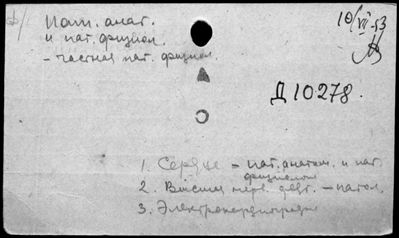 ф/
Пат. анат.
и пат. физиол.
- частная пат. физиол.
10/VII-53
Д 10278.
1. Сердце - пат. анатом. и пат.
физиология
2. Высшая нерв. деят. - патол.
3. Электрокардиография